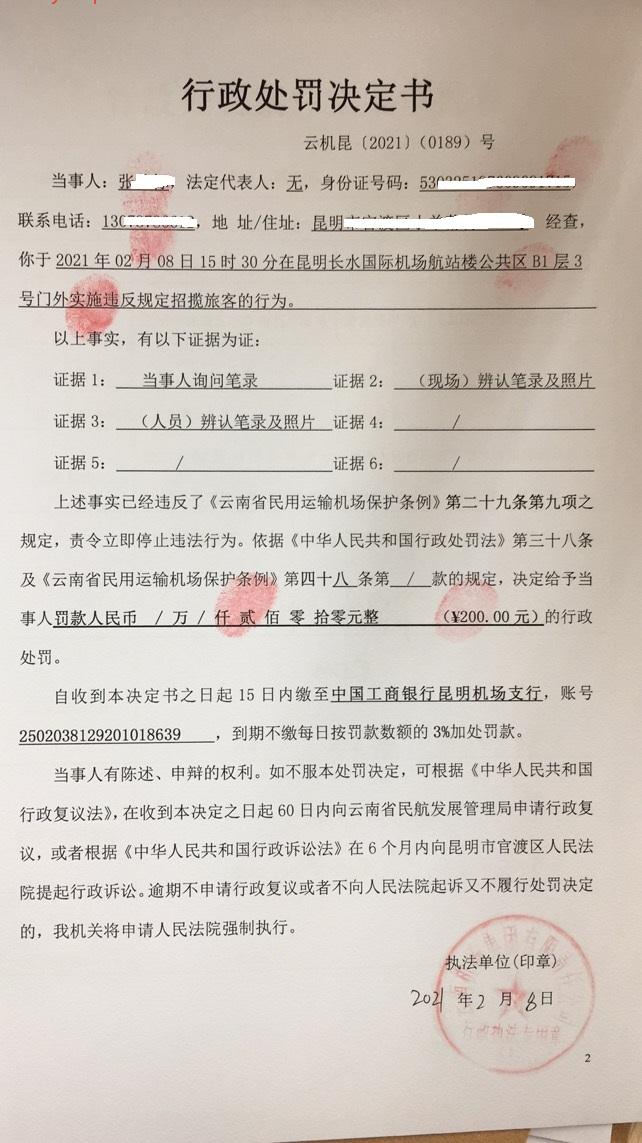 行政处罚决定书
云机昆〔2021〕(0189)号
当事人：张 ，法定代表人：无，身份证号码：
联系电话： ，地 址/住址：昆明市官渡区 经查，
你于 2021 年 02 月 08 日 15 时 30 分在昆明长水国际机场航站楼公共区 B1 层 3
号门外实施违反规定招揽旅客的行为。
以上事实，有以下证据为证：
证据 1： 当事人询问笔录 证据 2： （现场）辨认笔录及照片
证据 3： （人员）辨认笔录及照片 证据 4： /
证据 5： / 证据 6： /
上述事实已经违反了《云南省民用运输机场保护条例》第二十九条第九项之
规定，责令立即停止违法行为。依据《中华人民共和国行政处罚法》第三十八条
及《云南省民用运输机场保护条例》第四十八 条第 / 款的规定，决定给予当
事人罚款人民币 / 万 / 仟 贰 佰 零 拾零元整 （¥200.00 元）的行政
处罚。
自收到本决定书之日起 15 日内缴至中国工商银行昆明机场支行，账号
2502038129201018639 ，到期不缴每日按罚款数额的 3%加处罚款。
当事人有陈述、申辩的权利。如不服本处罚决定，可根据《中华人民共和国
行政复议法》，在收到本决定之日起 60 日内向云南省民航发展管理局申请行政复
议，或者根据《中华人民共和国行政诉讼法》在 6 个月内向昆明市官渡区人民法
院提起行政诉讼。逾期不申请行政复议或者不向人民法院起诉又不履行处罚决定
的，我机关将申请人民法院强制执行。
执法单位(印章)
2021 年 2 月 8 日
行政执法专用章
2